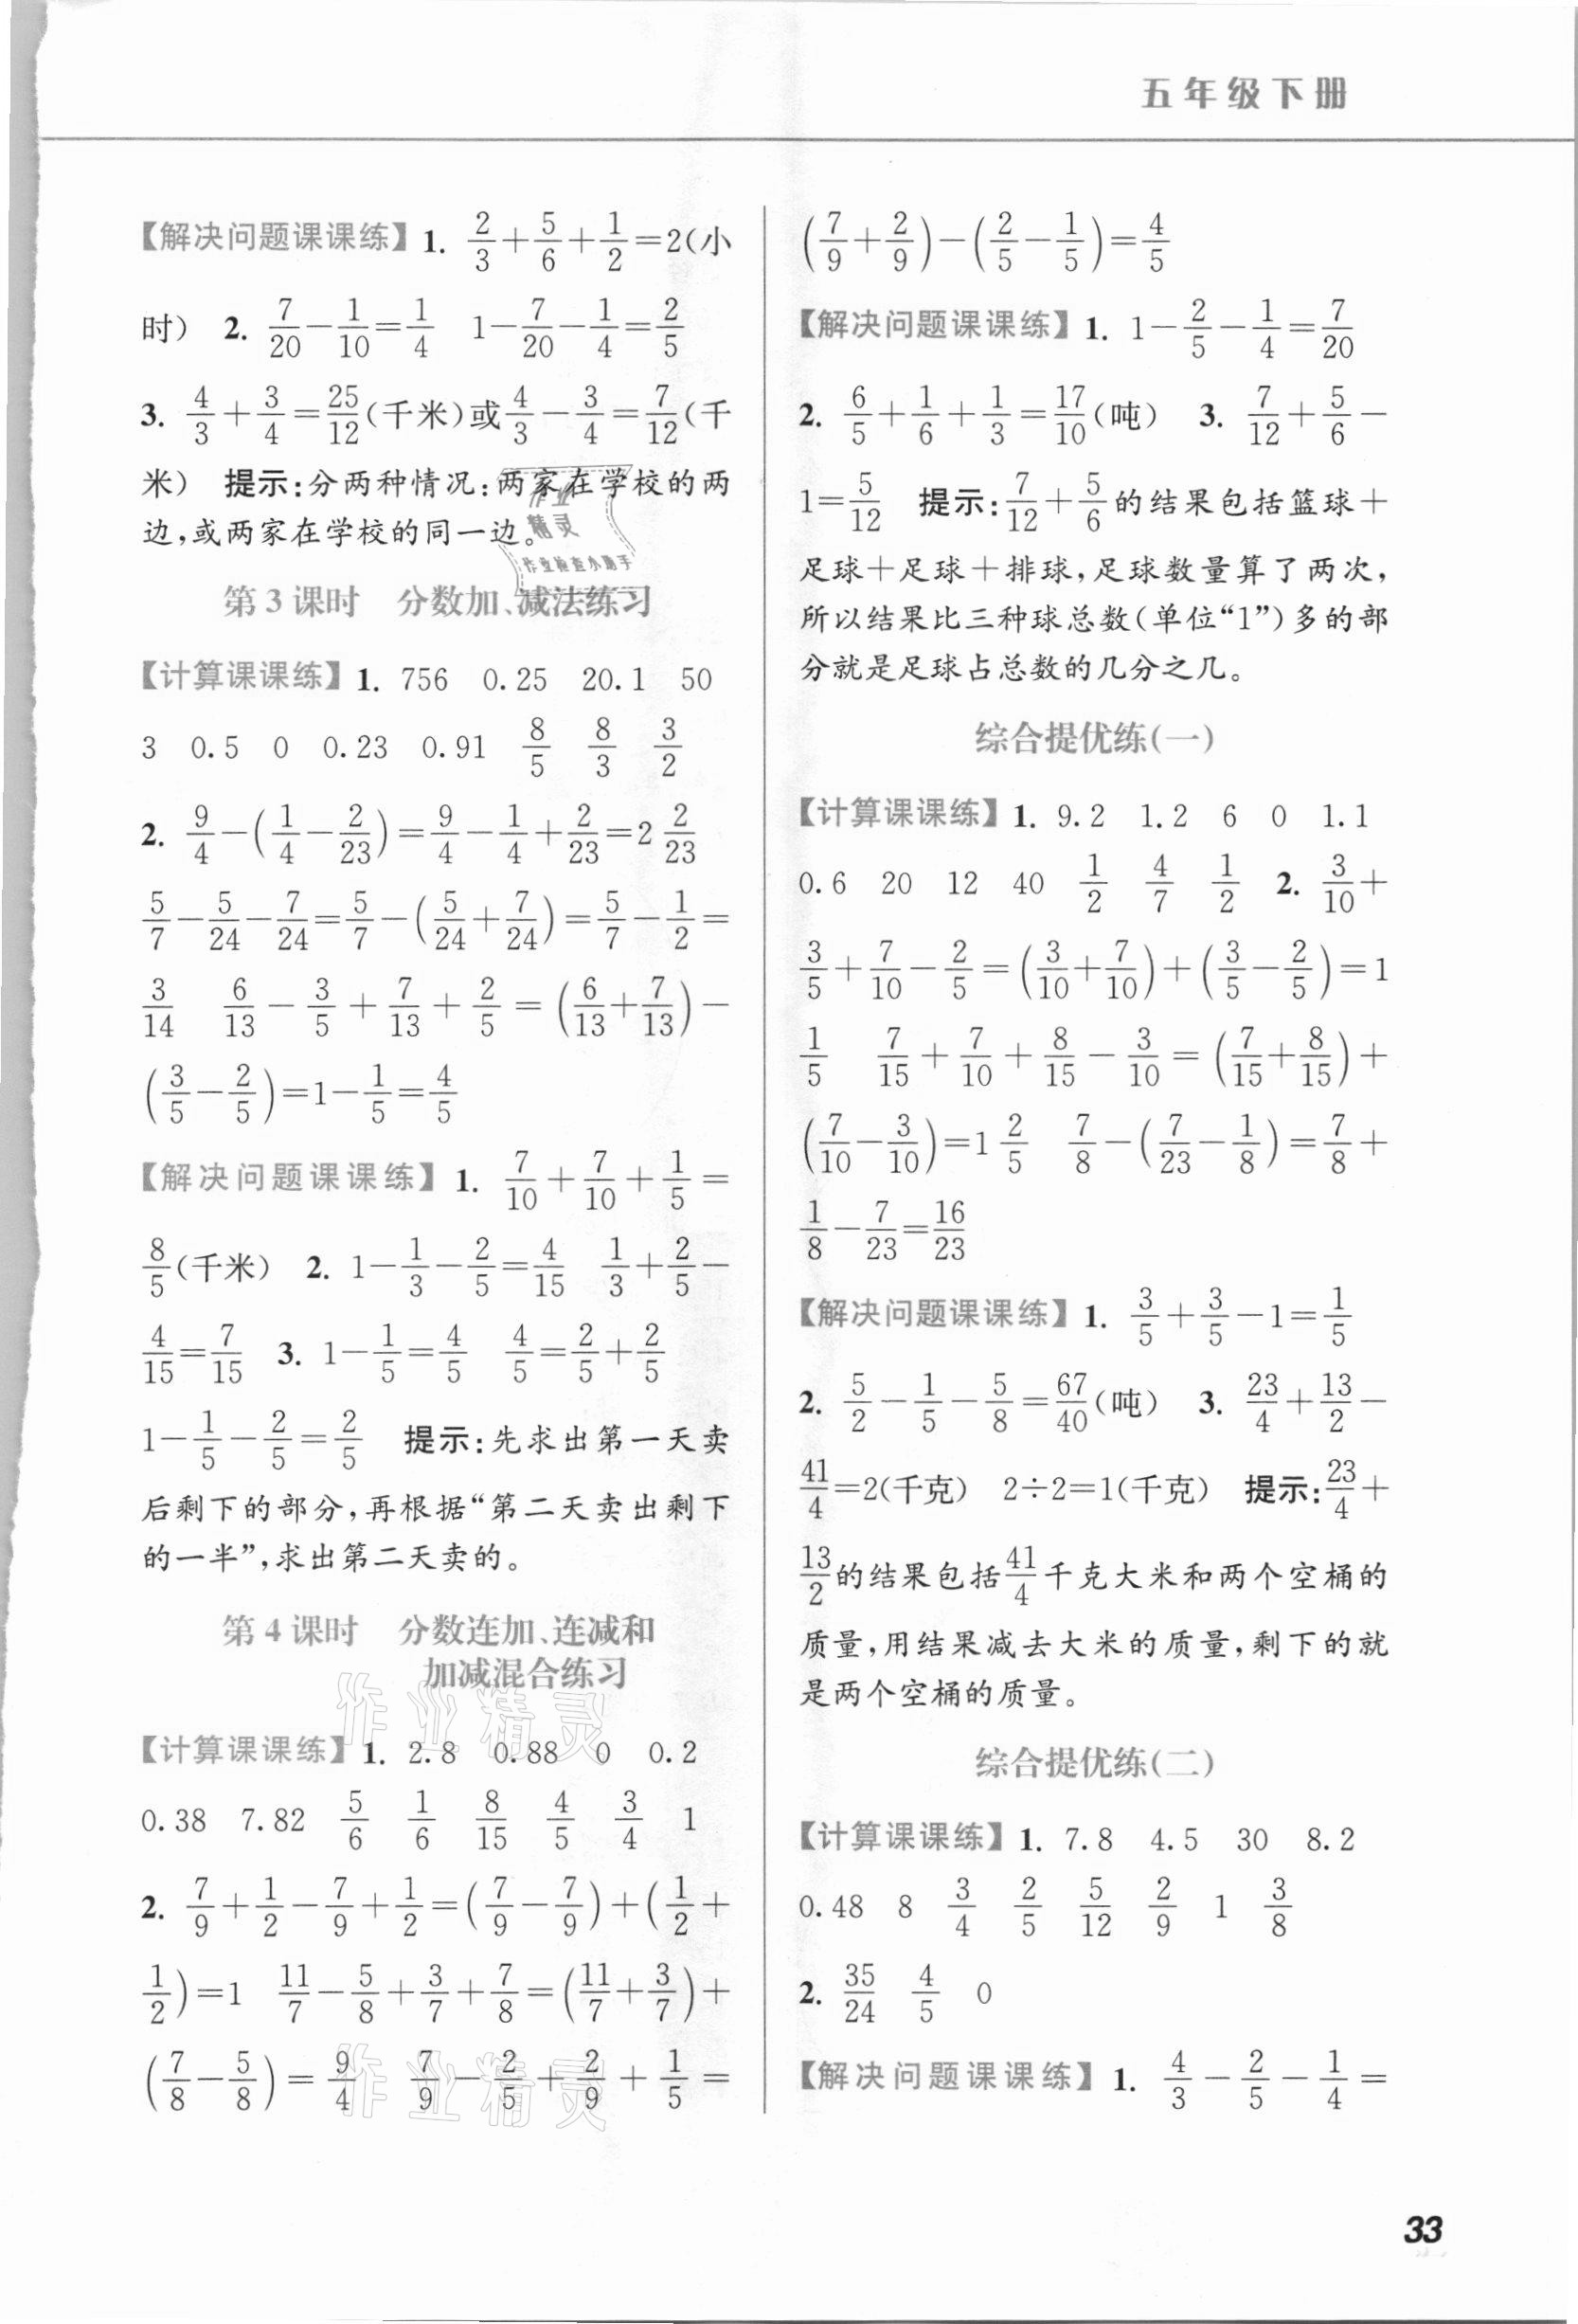 五年级下册
【解决问题课课练】1. 2/3+5/6+1/2=2(小
时) 2. 7/20-1/10=1/4 1-7/20-1/4=2/5
3. 4/3+3/4=25/12(千米)或4/3-3/4=7/12(千
米) 提示:分两种情况:两家在学校的两
边,或两家在学校的同一边。
第3课时 分数加、减法练习
【计算课课练】1. 756 0.25 20.1 50
3 0.5 0 0.23 0.91 8/5 8/3 3/2
2. 9/4-(1/4-2/23)=9/4-1/4+2/23=2 2/23
5/7-5/24-7/24=5/7-(5/24+7/24)=5/7-1/2=
3/14 6/13-3/5+7/13+2/5=(6/13+7/13)-
(3/5-2/5)=1-1/5=4/5
【解决问题课课练】1. 7/10+7/10+1/5=
8/5(千米) 2. 1-1/3-2/5=4/15 1/3+2/5-
4/15=7/15 3. 1-1/5=4/5 4/5=2/5+2/5
1-1/5-2/5=2/5 提示:先求出第一天卖
后剩下的部分,再根据“第二天卖出剩下
的一半”,求出第二天卖的。
第4课时 分数连加、连减和
加减混合练习
【计算课课练】1. 2.8 0.88 0 0.2
0.38 7.82 5/6 1/6 8/15 4/5 3/4 1
2. 7/9+1/2-7/9+1/2=(7/9-7/9)+(1/2+
1/2)=1 11/7-5/8+3/7+7/8=(11/7+3/7)+
(7/8-5/8)=9/4 7/9-2/5+2/9+1/5=
(7/9+2/9)-(2/5-1/5)=4/5
【解决问题课课练】1. 1-2/5-1/4=7/20
2. 6/5+1/6+1/3=17/10(吨) 3. 7/12+5/6-
1=5/12 提示:7/12+5/6的结果包括篮球+
足球+足球+排球,足球数量算了两次,
所以结果比三种球总数(单位“1”)多的部
分就是足球占总数的几分之几。
综合提优练(一)
【计算课课练】1. 9.2 1.2 6 0 1.1
0.6 20 12 40 1/2 4/7 1/2 2. 3/10+
3/5+7/10-2/5=(3/10+7/10)+(3/5-2/5)=1
1/5 7/15+7/10+8/15-3/10=(7/15+8/15)+
(7/10-3/10)=1 2/5 7/8-(7/23-1/8)=7/8+
1/8-7/23=16/23
【解决问题课课练】1. 3/5+3/5-1=1/5
2. 5/2-1/5-5/8=67/40(吨) 3. 23/4+13/2-
41/4=2(千克) 2÷2=1(千克) 提示:23/4+
13/2的结果包括41/4千克大米和两个空桶的
质量,用结果减去大米的质量,剩下的就
是两个空桶的质量。
综合提优练(二)
【计算课课练】1. 7.8 4.5 30 8.2
0.48 8 3/4 2/5 5/12 2/9 1 3/8
2. 35/24 4/5 0
【解决问题课课练】1. 4/3-2/5-1/4=
33
作业
精灵
作业检查小助手
作业精灵
作业精灵